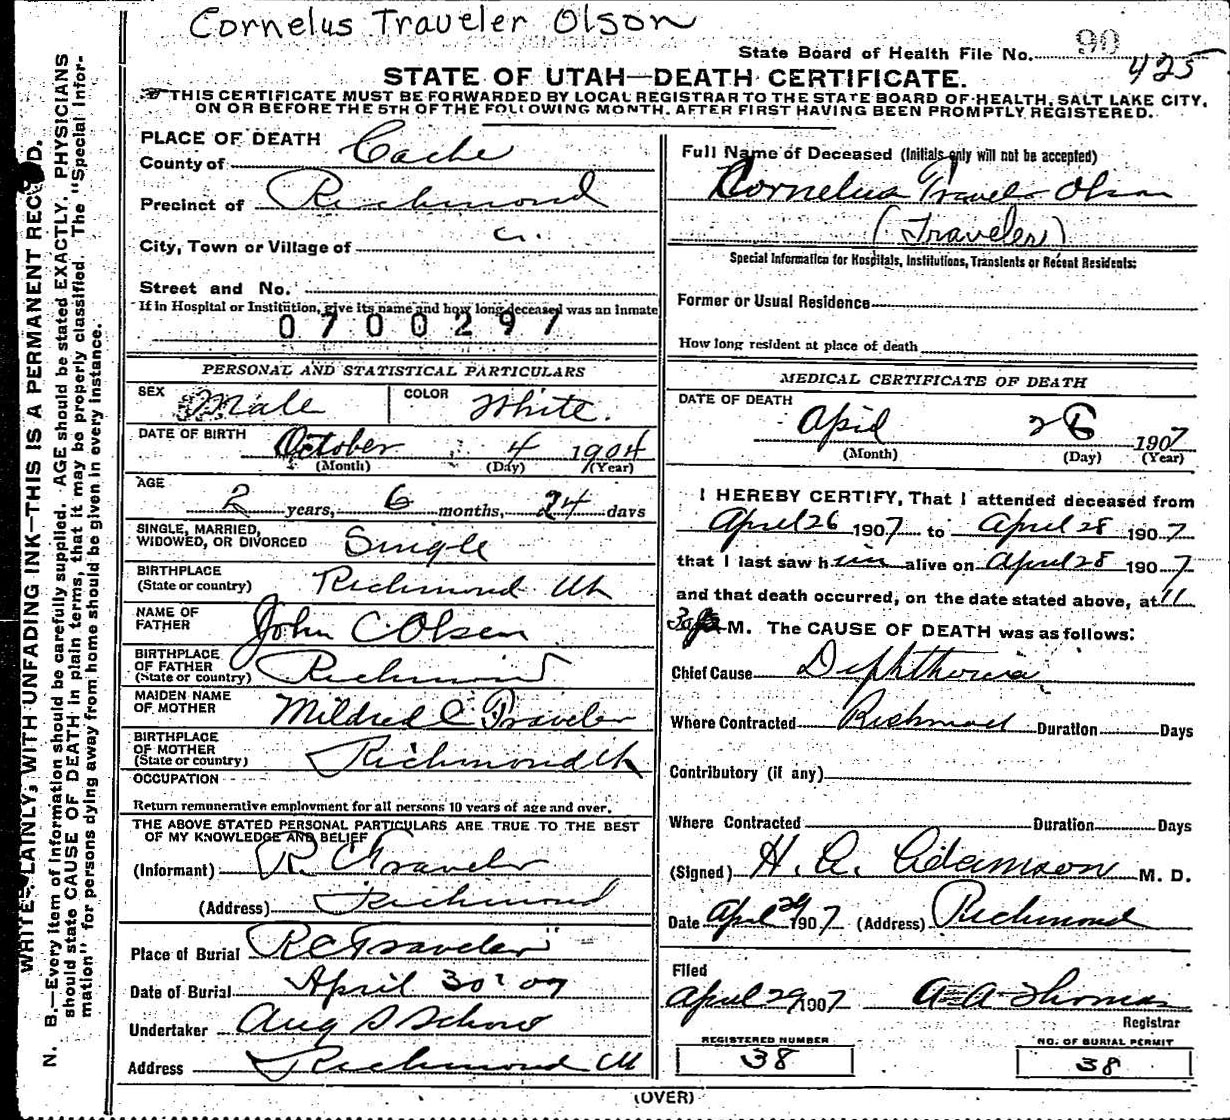 Cornelus Traveler Olson
State Board of Health File No. 90
425
STATE OF UTAH—DEATH CERTIFICATE.
THIS CERTIFICATE MUST BE FORWARDED BY LOCAL REGISTRAR TO THE STATE BOARD OF HEALTH, SALT LAKE CITY,
ON OR BEFORE THE 5TH OF THE FOLLOWING MONTH, AFTER FIRST HAVING BEEN PROMPTLY REGISTERED.
WRITE PLAINLY, WITH UNFADING INK—THIS IS A PERMANENT RECORD.
N. B.—Every item of information should be carefully supplied. AGE should be stated EXACTLY. PHYSICIANS
should state CAUSE OF DEATH in plain terms, that it may be properly classified. The "Special Infor-
mation" for persons dying away from home should be given in every instance.
PLACE OF DEATH
County of Cache
Precinct of Richmond
City, Town or Village of
Street and No.
If in Hospital or Institution, give its name and how long deceased was an inmate
0700297
PERSONAL AND STATISTICAL PARTICULARS
SEX Male COLOR White.
DATE OF BIRTH October 4 1904
(Month) (Day) (Year)
AGE
2 years, 6 months, 24 days
SINGLE, MARRIED,
WIDOWED, OR DIVORCED Single
BIRTHPLACE
(State or country) Richmond Ut
NAME OF
FATHER John C Olsen
BIRTHPLACE
OF FATHER
(State or country) Richmond
MAIDEN NAME
OF MOTHER Mildred C Traveler
BIRTHPLACE
OF MOTHER
(State or country) Richmond Ut
OCCUPATION
Return remunerative employment for all persons 10 years of age and over.
THE ABOVE STATED PERSONAL PARTICULARS ARE TRUE TO THE BEST
OF MY KNOWLEDGE AND BELIEF
(Informant) R. C Traveler
(Address) Richmond
Place of Burial R C Traveler
Date of Burial April 30 07
Undertaker Aug S Schow
Address Richmond Ut
Full Name of Deceased (Initials only will not be accepted)
Cornelius Travels Olson
(Traveler)
Special Information for Hospitals, Institutions, Transients or Recent Residents:
Former or Usual Residence
How long resident at place of death
MEDICAL CERTIFICATE OF DEATH
DATE OF DEATH
April 28 1907
(Month) (Day) (Year)
I HEREBY CERTIFY, That I attended deceased from
April 26 1907 to April 28 1907
that I last saw him alive on April 28 1907
and that death occurred, on the date stated above, at 11
30 M. The CAUSE OF DEATH was as follows:
Chief Cause Diphtheria
Where Contracted Richmond Duration Days
Contributory (if any)
Where Contracted Duration Days
(Signed) H. A. Adamson M. D.
Date April 29 1907 (Address) Richmond
Filed
April 29 1907 A A Thomas
Registrar
REGISTERED NUMBER
38
NO. OF BURIAL PERMIT
38
(OVER)